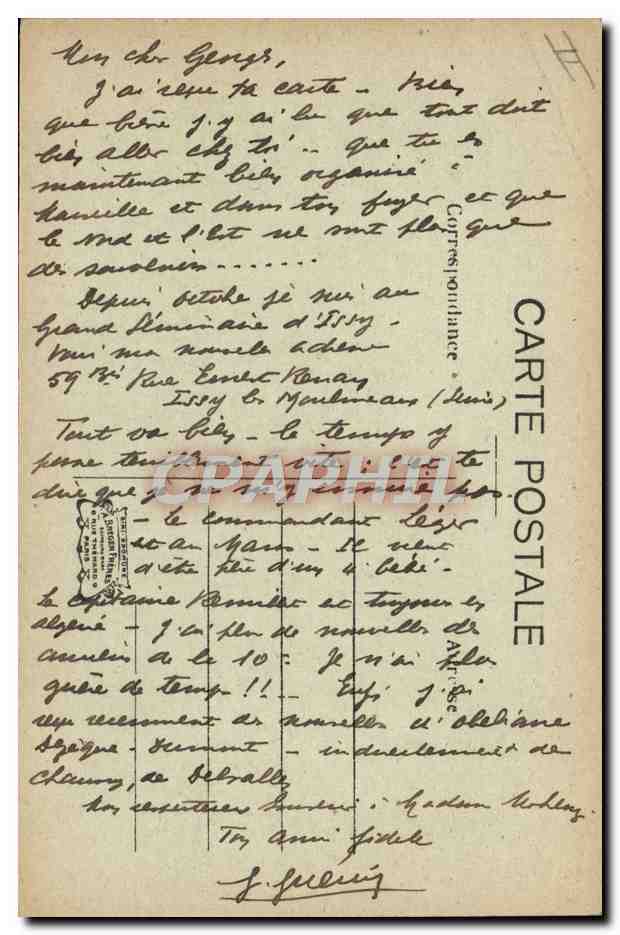 Mon cher Georges,
J'ai reçu ta carte - Bien
que brève j'y ai lu que tout doit
bien aller chez toi .. que tu es
maintenant bien organisé à
Marseille et dans ton foyer et que
le Nord et l'Est ne sont plus que
des souvenirs .......
Depuis octobre je suis au
Grand Séminaire d'Issy -
Voici ma nouvelle adresse
59 Bis Rue Ernest Renan
Issy les Moulineaux (Seine)
Tout va bien - le temps y
passe vite : c'est te
dire que je ne m'y ennuie pas
- le commandant Léger
est au Mans - Il vient
d'être père d'un 4e bébé -
Le capitaine est toujours en
Algérie - J'ai plus de nouvelles des
anciens de la 10e Je n'ai plus
guère de temps !! - Enfin j'ai
reçu récemment des nouvelles d'
Dumont - indirectement de
Chauny, de Delsalle
Mes respectueux souvenirs à Madame
Ton ami fidèle
G. Guérin
CARTE POSTALE
Correspondance
Adresse
A. BREGER FRÈRES
9 RUE THENARD 9
PARIS
CPARAMA